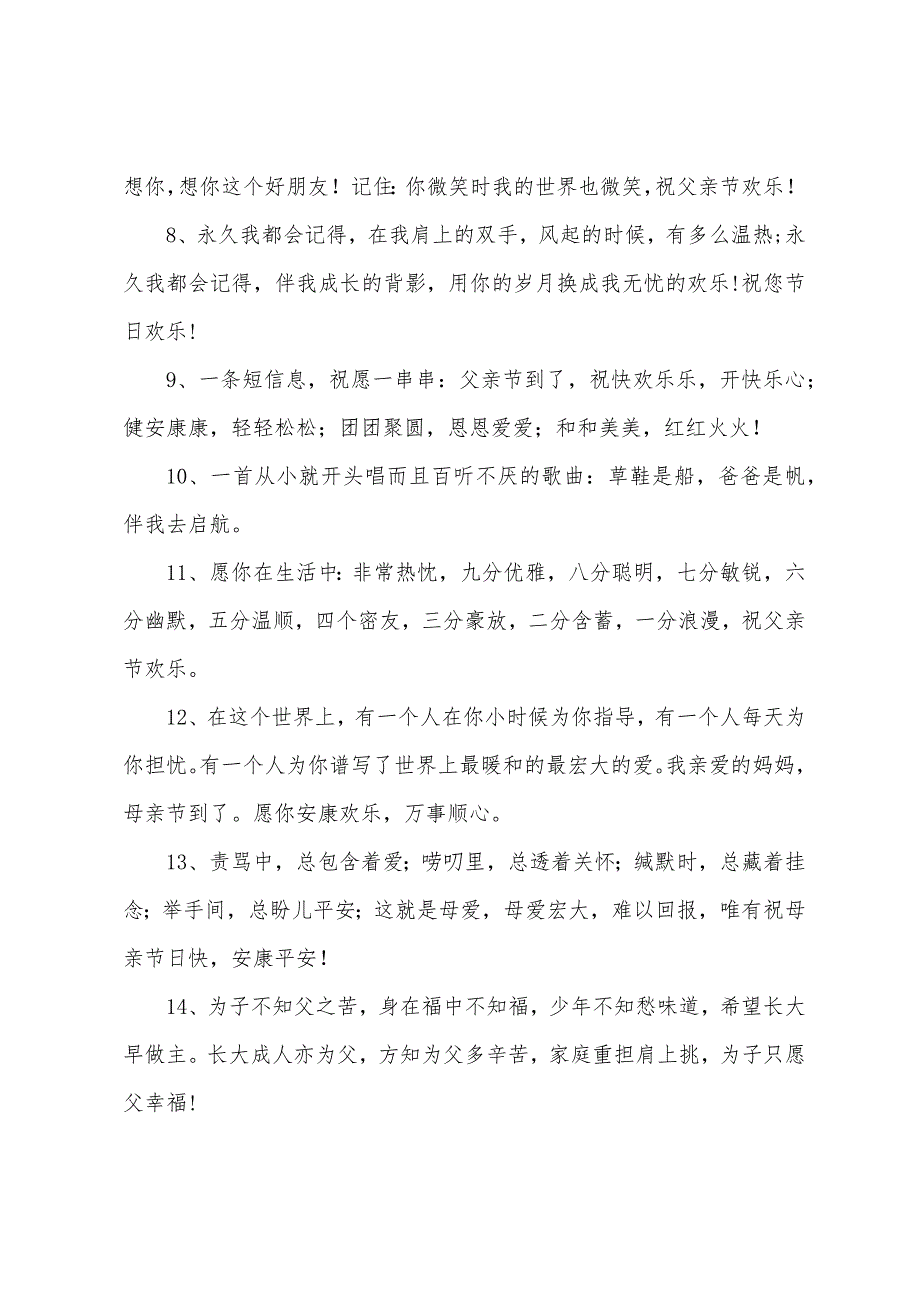 想你，想你这个好朋友！记住：你微笑时我的世界也微笑，祝父亲节欢乐！
8、永久我都会记得，在我肩上的双手，风起的时候，有多么温热;永
久我都会记得，伴我成长的背影，用你的岁月换成我无忧的欢乐!祝您节
日欢乐!
9、一条短信息，祝愿一串串：父亲节到了，祝快欢乐乐，开快乐心；
健安康康，轻轻松松；团团聚圆，恩恩爱爱；和和美美，红红火火！
10、一首从小就开头唱而且百听不厌的歌曲：草鞋是船，爸爸是帆，
伴我去启航。
11、愿你在生活中：非常热忱，九分优雅，八分聪明，七分敏锐，六
分幽默，五分温顺，四个密友，三分豪放，二分含蓄，一分浪漫，祝父亲
节欢乐。
12、在这个世界上，有一个人在你小时候为你指导，有一个人每天为
你担忧。有一个人为你谱写了世界上最暖和的最宏大的爱。我亲爱的妈妈，
母亲节到了。愿你安康欢乐，万事顺心。
13、责骂中，总包含着爱；唠叨里，总透着关怀；缄默时，总藏着挂
念；举手间，总盼儿平安；这就是母爱，母爱宏大，难以回报，唯有祝母
亲节日快，安康平安！
14、为子不知父之苦，身在福中不知福，少年不知愁味道，希望长大
早做主。长大成人亦为父，方知为父多辛苦，家庭重担肩上挑，为子只愿
父幸福!